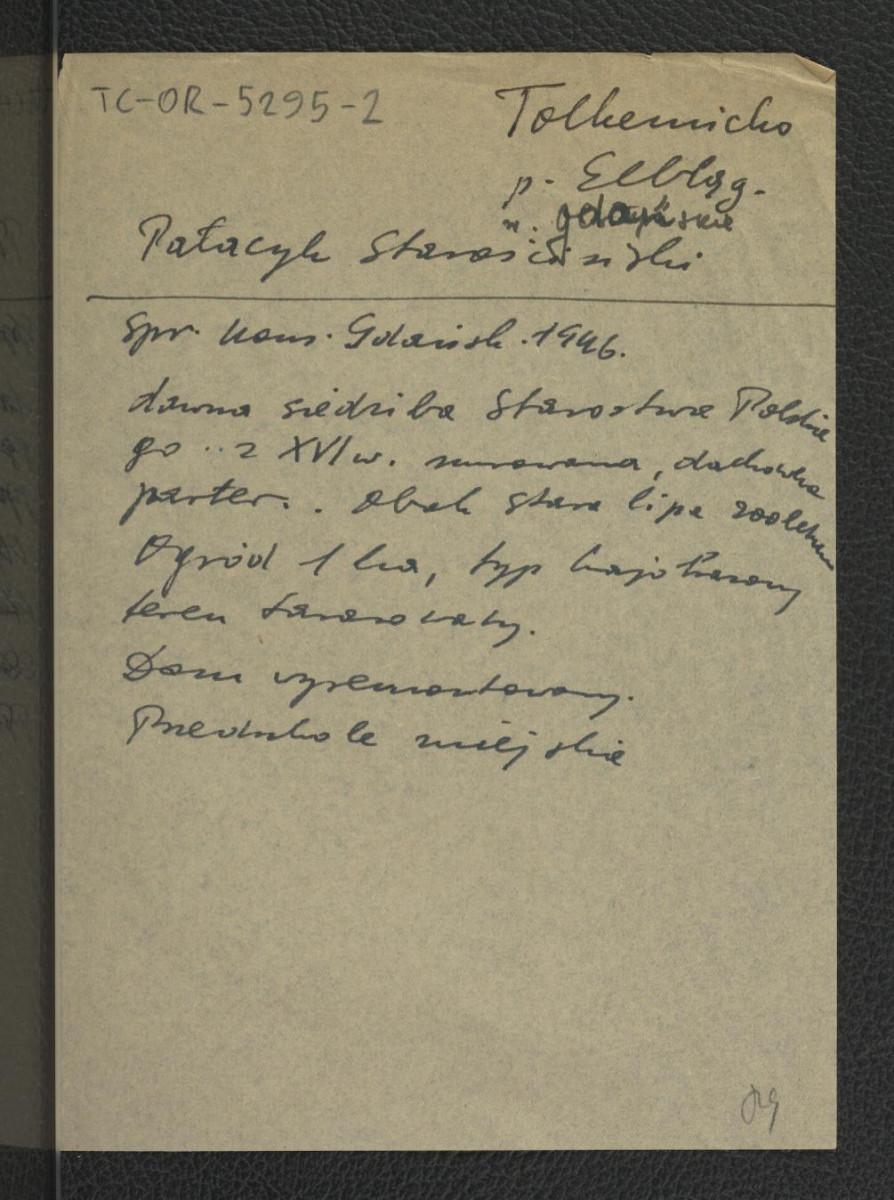 TC-OR-5295-2
Tolkemicko
p. Elbląg.
w. gdańskie
Pałacyk Starościński
Spr. Kons. Gdańsk. 1946.
dawna siedziba Starostwa Polskie
go .. z XVI w. murowana, dachówka
parter. . Obok stara lipa 200letnia
Ogród 1 ha, typ krajobrazowy
teren tarasowaty.
Dom wyremontowany.
Przedszkole miejskie